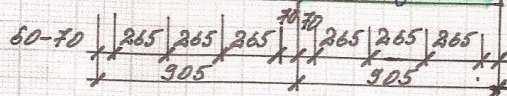 60-70 265 265 265 70 70 265 265 265
905 905